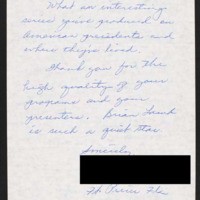 What an interesting
series you've produced on
American presidents and
where they've lived.
Thank you for the
high quality of your
programs and your
presenters. Brian Lamb
is such a quiet star
Sincerely,
Ft Pierce Fla